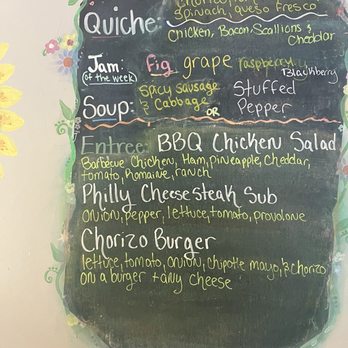 Chorizo,
Quiche: spinach, queso fresco
Chicken, Bacon, Scallions &
Cheddar
Jam: Fig grape raspberry
(of the week) Blackberry
Spicy sausage Stuffed
Soup: & Cabbage OR Pepper
Entree: BBQ Chicken Salad
Barbecue Chicken, Ham, pineapple, Cheddar,
tomato, Romaine, ranch
Philly Cheesesteak Sub
onion, pepper, lettuce, tomato, provolone
Chorizo Burger
lettuce, tomato, onion, chipotle mayo, & chorizo
on a burger + any cheese